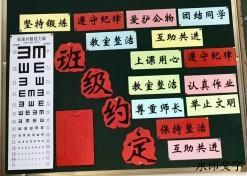 坚持锻炼
遵守纪律
爱护公物
团结同学
教室整洁
互助共进
上课用心
遵守纪律
教室整洁
认真作业
尊重师长
举止文明
保持整洁
互助共进
班级约定
水印文字